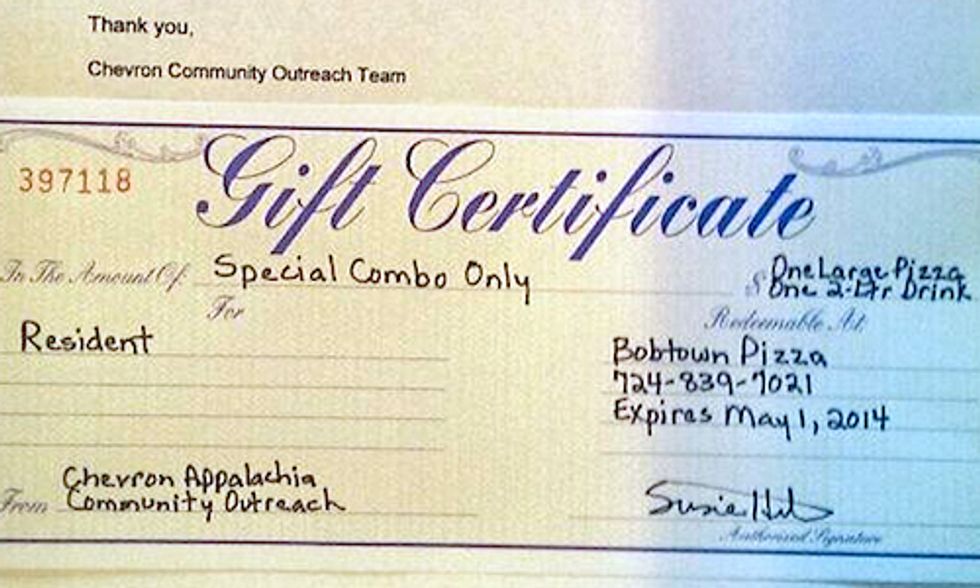 Thank you,
Chevron Community Outreach Team
397118
Gift Certificate
In The Amount Of: Special Combo Only
$ One Large Pizza
One 2-Ltr Drink
For
Resident
Redeemable At:
Bobtown Pizza
724-839-7021
Expires May 1, 2014
From Chevron Appalachia
Community Outreach
Susie
Authorized Signature